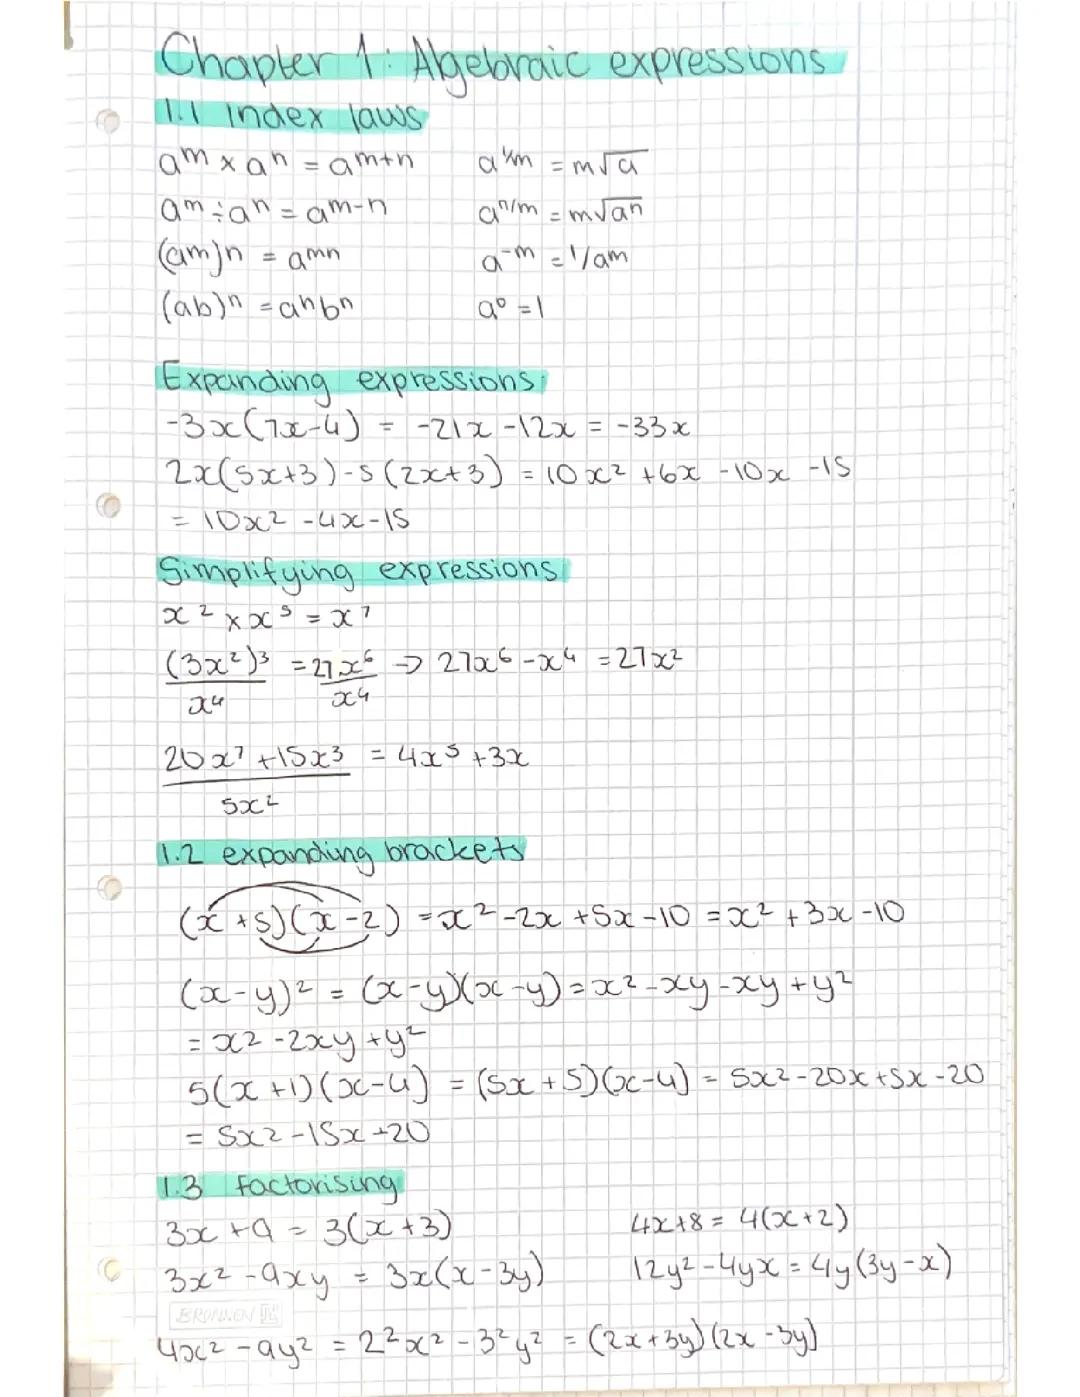 Chapter 1: Algebraic expressions
1.1 Index laws
aᵐ × aⁿ = aᵐ⁺ⁿ    a^1/m = m√a
aᵐ ÷ aⁿ = aᵐ⁻ⁿ    a^n/m = m√aⁿ
(aᵐ)ⁿ = aᵐⁿ    a⁻ᵐ = 1/aᵐ
(ab)ⁿ = aⁿbⁿ    a⁰ = 1
Expanding expressions:
-3x(7x-4) = -21x -12x = -33x
2x(5x+3)-5(2x+3) = 10x² +6x -10x -15
= 10x² -4x-15
Simplifying expressions
x² × x⁵ = x⁷
(3x²)³/x⁴ = 27x⁶/x⁴ → 27x⁶-x⁴ = 27x²
20x⁷ +15x³/5x² = 4x⁵ +3x
1.2 expanding brackets
(x +5)(x -2) = x² -2x +5x -10 = x² +3x -10
(x-y)² = (x-y)(x-y) = x² -xy -xy +y²
= x² -2xy +y²
5(x +1)(x-4) = (5x +5)(x-4) = 5x² -20x +5x -20
= 5x² -15x +20
1.3 factorising
3x +9 = 3(x +3)    4x+8 = 4(x+2)
3x² -9xy = 3x(x -3y)    12y² -4yx = 4y(3y -x)
BRUNNEN
4x² -9y² = 2²x² -3²y² = (2x+3y)(2x -3y)